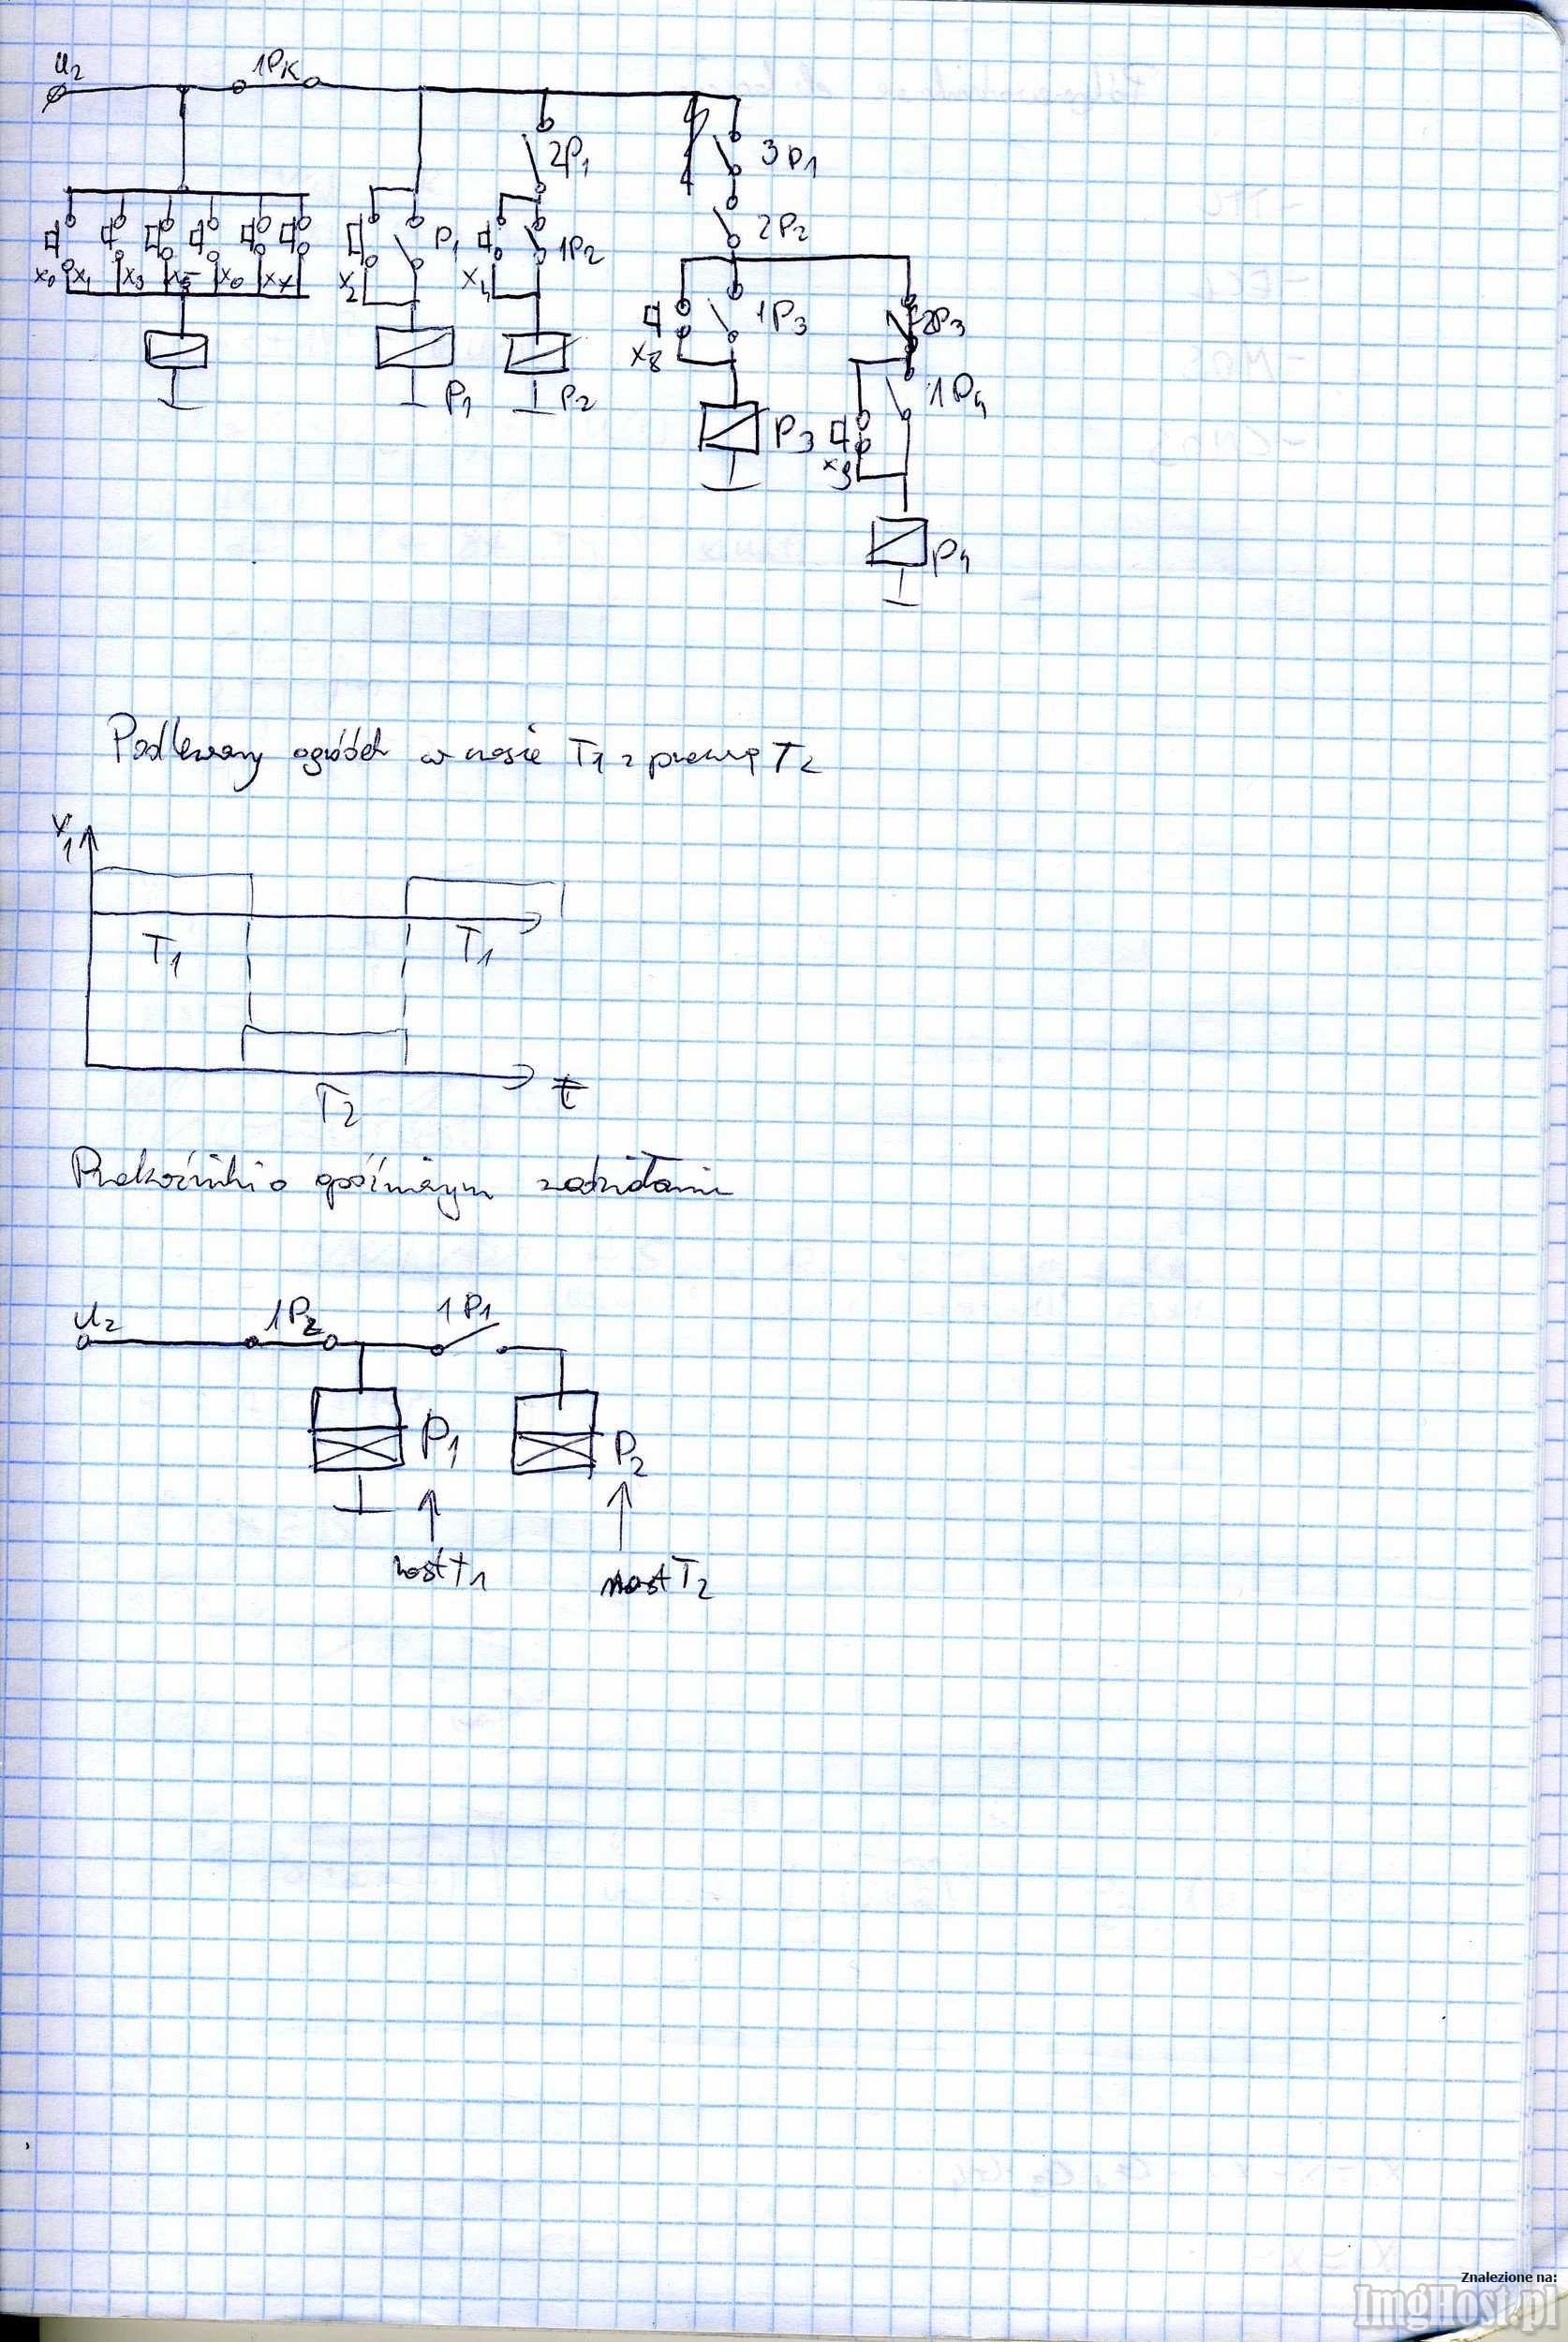 U₂ 1Pκ
2P₁ 3P₁
P₁ 1P₂ 2P₂
x₀ x₁ x₃ x₅ x₆ x₇ x₂ x₄
1P₃ 2P₃
x₈ 1P₄
P₁ P₂ P₃
x₉
P₄
Podlewany ogródek w czasie T₁ z przerwą T₂
Y₁
T₁ T₁
T₂ t
Przekaźniki o opóźnianym zadziałaniu
U₂ 1P₂ 1P₁
P₁ P₂
nast T₁ nast T₂
Znalezione na:
ImgHost.pl